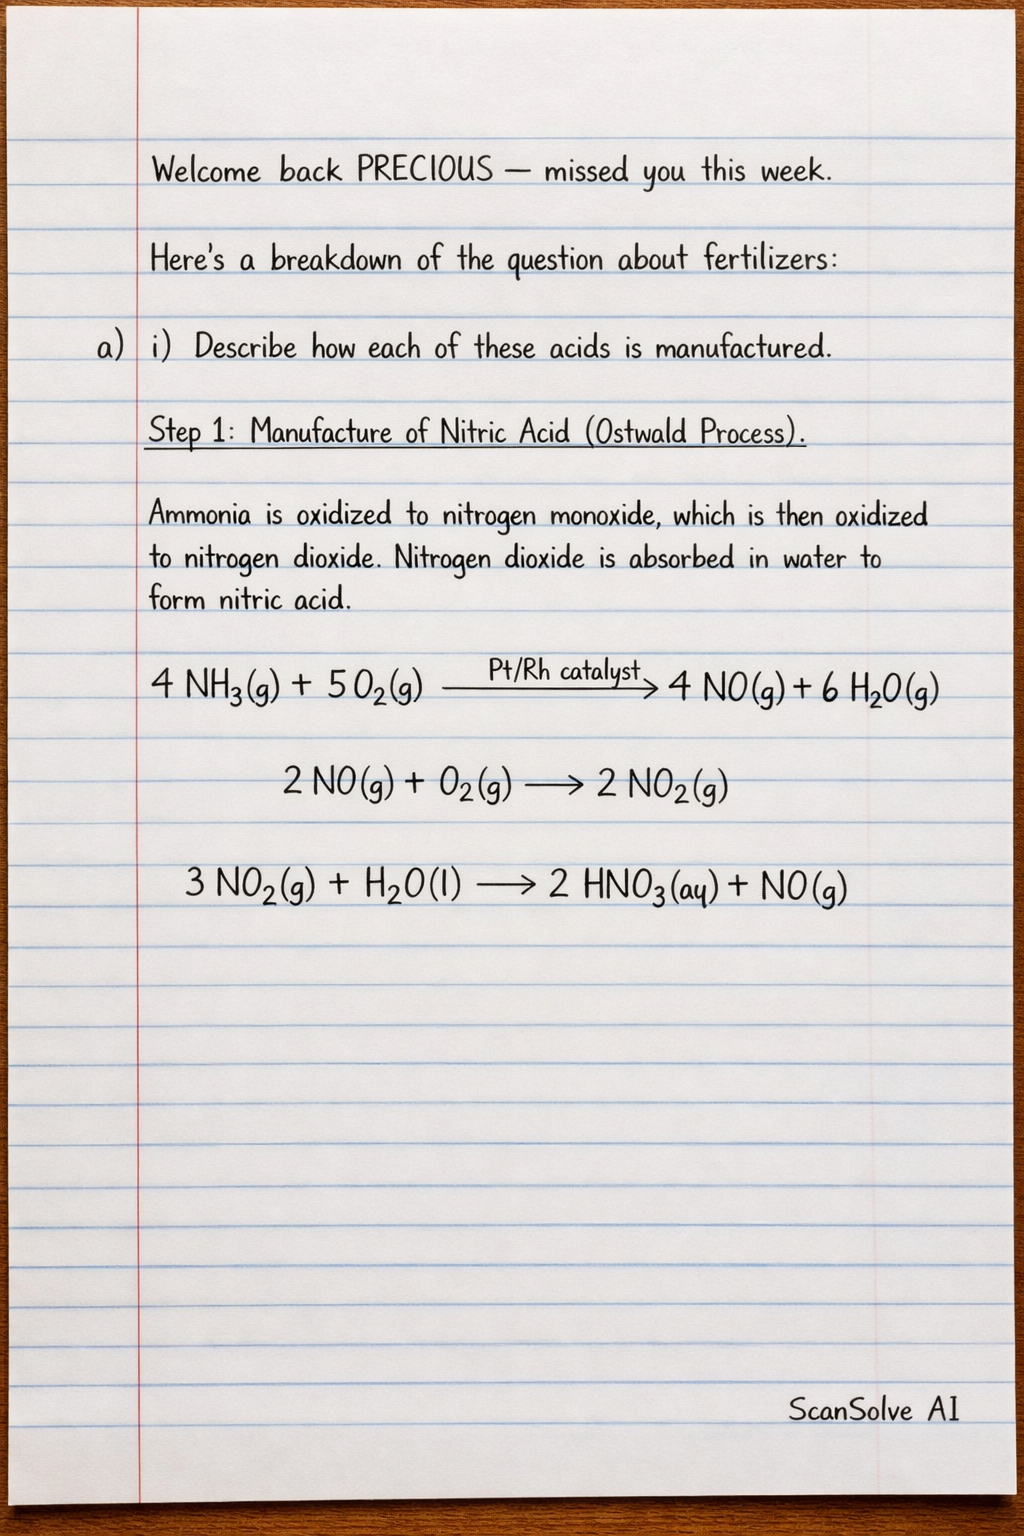 Welcome back PRECIOUS — missed you this week.
Here's a breakdown of the question about fertilizers:
a) i) Describe how each of these acids is manufactured.
Step 1: Manufacture of Nitric Acid (Ostwald Process).
Ammonia is oxidized to nitrogen monoxide, which is then oxidized
to nitrogen dioxide. Nitrogen dioxide is absorbed in water to
form nitric acid.
4 NH₃(g) + 5 O₂(g) Pt/Rh catalyst → 4 NO(g) + 6 H₂O(g)
2 NO(g) + O₂(g) → 2 NO₂(g)
3 NO₂(g) + H₂O(l) → 2 HNO₃(aq) + NO(g)
ScanSolve AI